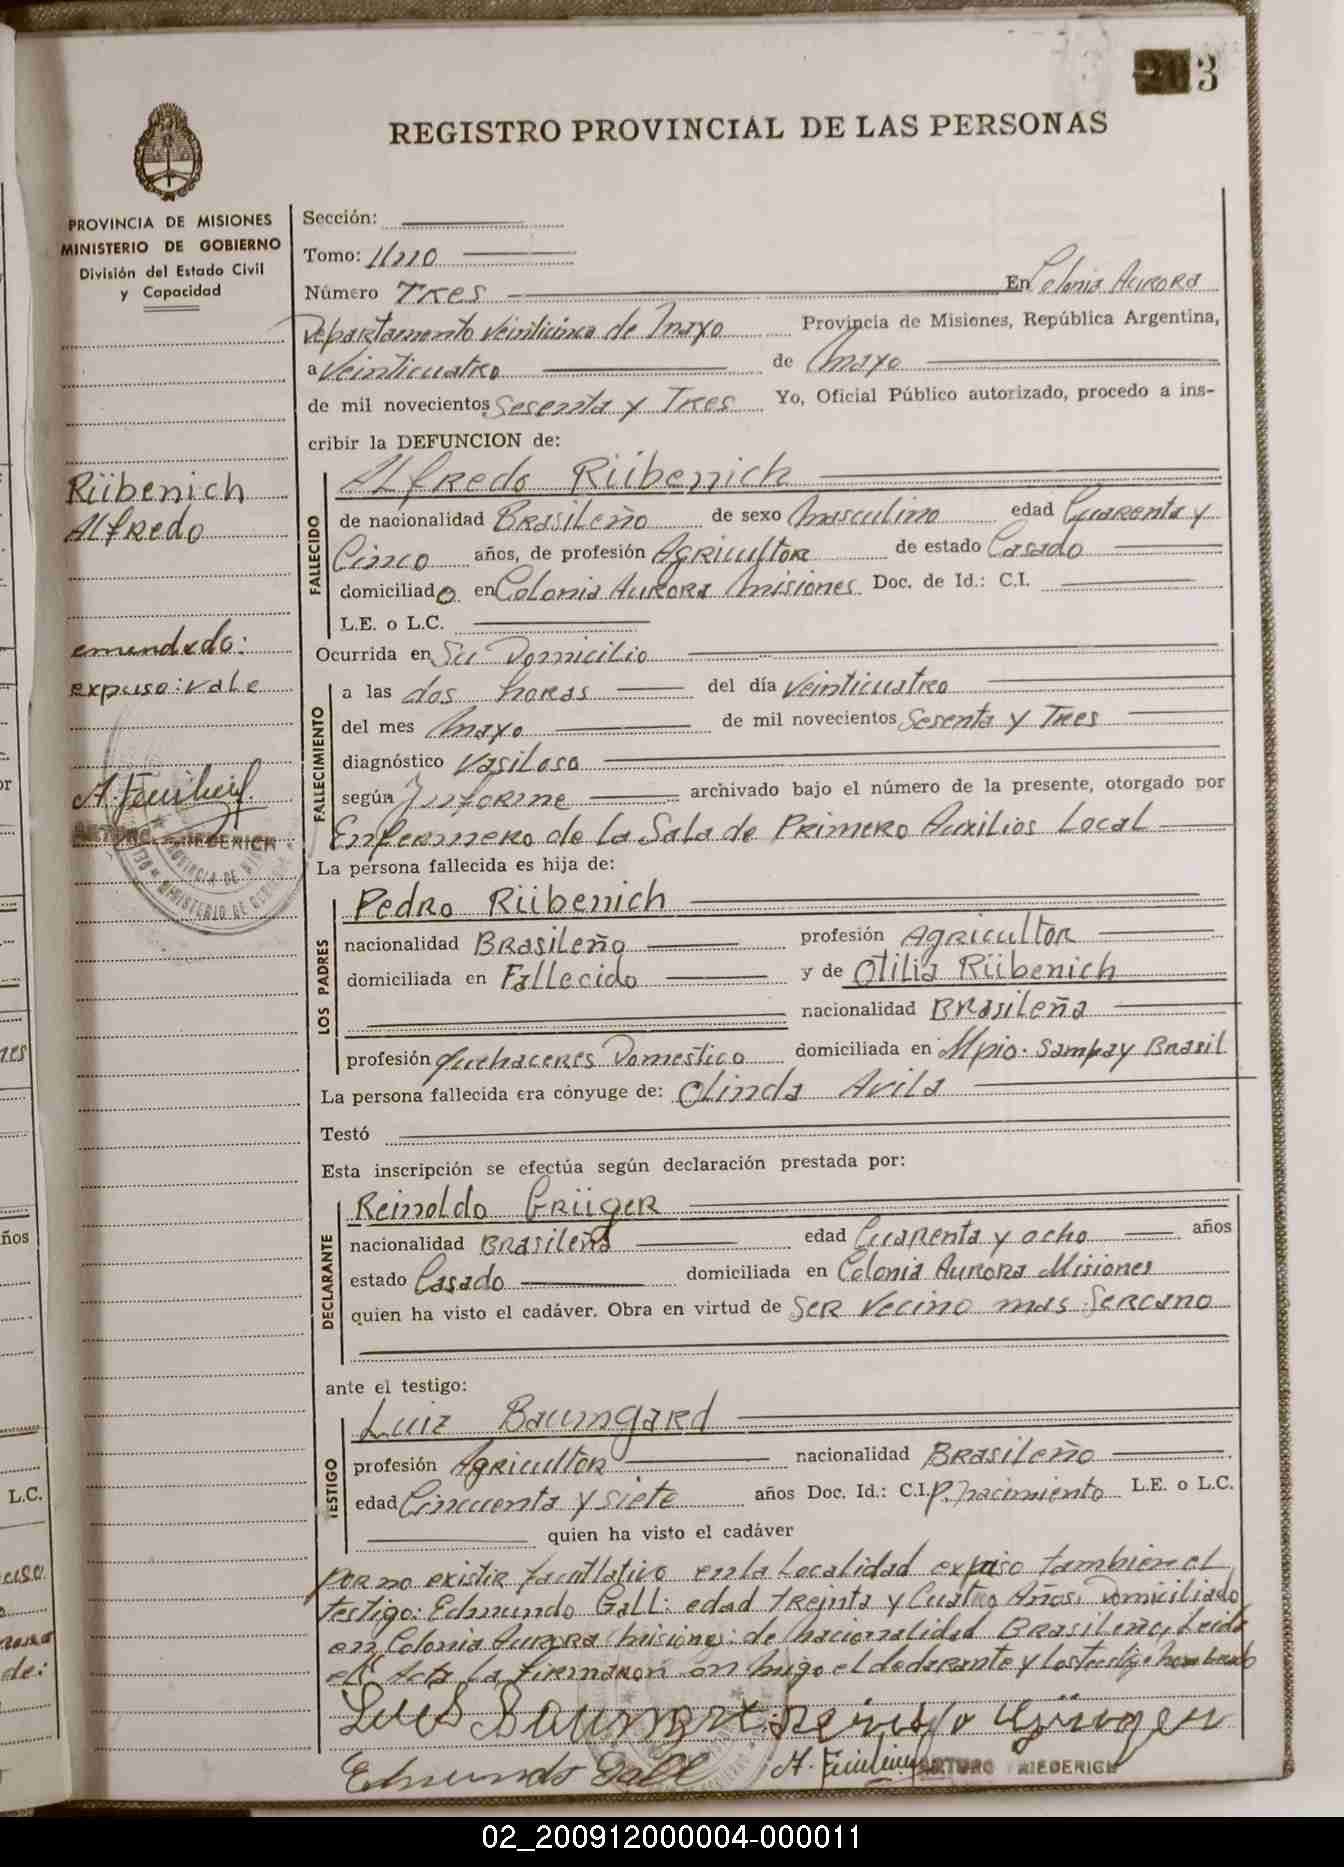 3
REGISTRO PROVINCIAL DE LAS PERSONAS
PROVINCIA DE MISIONES
MINISTERIO DE GOBIERNO
División del Estado Civil
y Capacidad
Sección:
Tomo: Uno
Número Tres En Colonia Aurora
Departamento Veinticinco de Mayo Provincia de Misiones, República Argentina,
a Veinticuatro de Mayo
de mil novecientos Sesenta y Tres Yo, Oficial Público autorizado, procedo a ins-
cribir la DEFUNCION de:
Rübenich
Alfredo
emendado:
expuso: vale
ARTURO RIEDERICH
FALLECIDO
Alfredo Rübenich
de nacionalidad Brasileño de sexo Masculino edad Cuarenta y
Cinco años, de profesión Agricultor de estado Casado
domiciliado en Colonia Aurora Misiones Doc. de Id.: C.I.
L.E. o L.C.
Ocurrida en Su Domicilio
FALLECIMIENTO
a las dos horas del día Veinticuatro
del mes Mayo de mil novecientos Sesenta y Tres
diagnóstico Vasilosa
según Informe archivado bajo el número de la presente, otorgado por
Enfermero de la Sala de Primero Auxilios Local
La persona fallecida es hija de:
LOS PADRES
Pedro Rübenich
nacionalidad Brasileño profesión Agricultor
domiciliada en Fallecido y de Otilia Rübenich
nacionalidad Brasileña
profesión Quehaceres Domestico domiciliada en Mpio. Sampay Brasil
La persona fallecida era cónyuge de: Olinda Avila
Testó
Esta inscripción se efectúa según declaración prestada por:
DECLARANTE
Reinoldo Grüger
nacionalidad Brasileña edad Cuarenta y ocho años
estado Casado domiciliada en Colonia Aurora Misiones
quien ha visto el cadáver. Obra en virtud de Ser Vecino mas Sercano
ante el testigo:
TESTIGO
Luiz Baumgard
profesión Agricultor nacionalidad Brasileño
edad Cincuenta y siete años Doc. Id.: C.I. P. nacimiento L.E. o L.C.
quien ha visto el cadáver
Por no existir facultativo en la Localidad expuso también el
testigo: Edmundo Gall: edad Treinta y Cuatro Años, Domiciliado
en Colonia Aurora Misiones: de nacionalidad Brasileño, Leida
el Acta La firmaron
Luis Baumgart Reinoldo Grüger
Edmundo Gall
ARTURO RIEDERICH
02_200912000004-000011